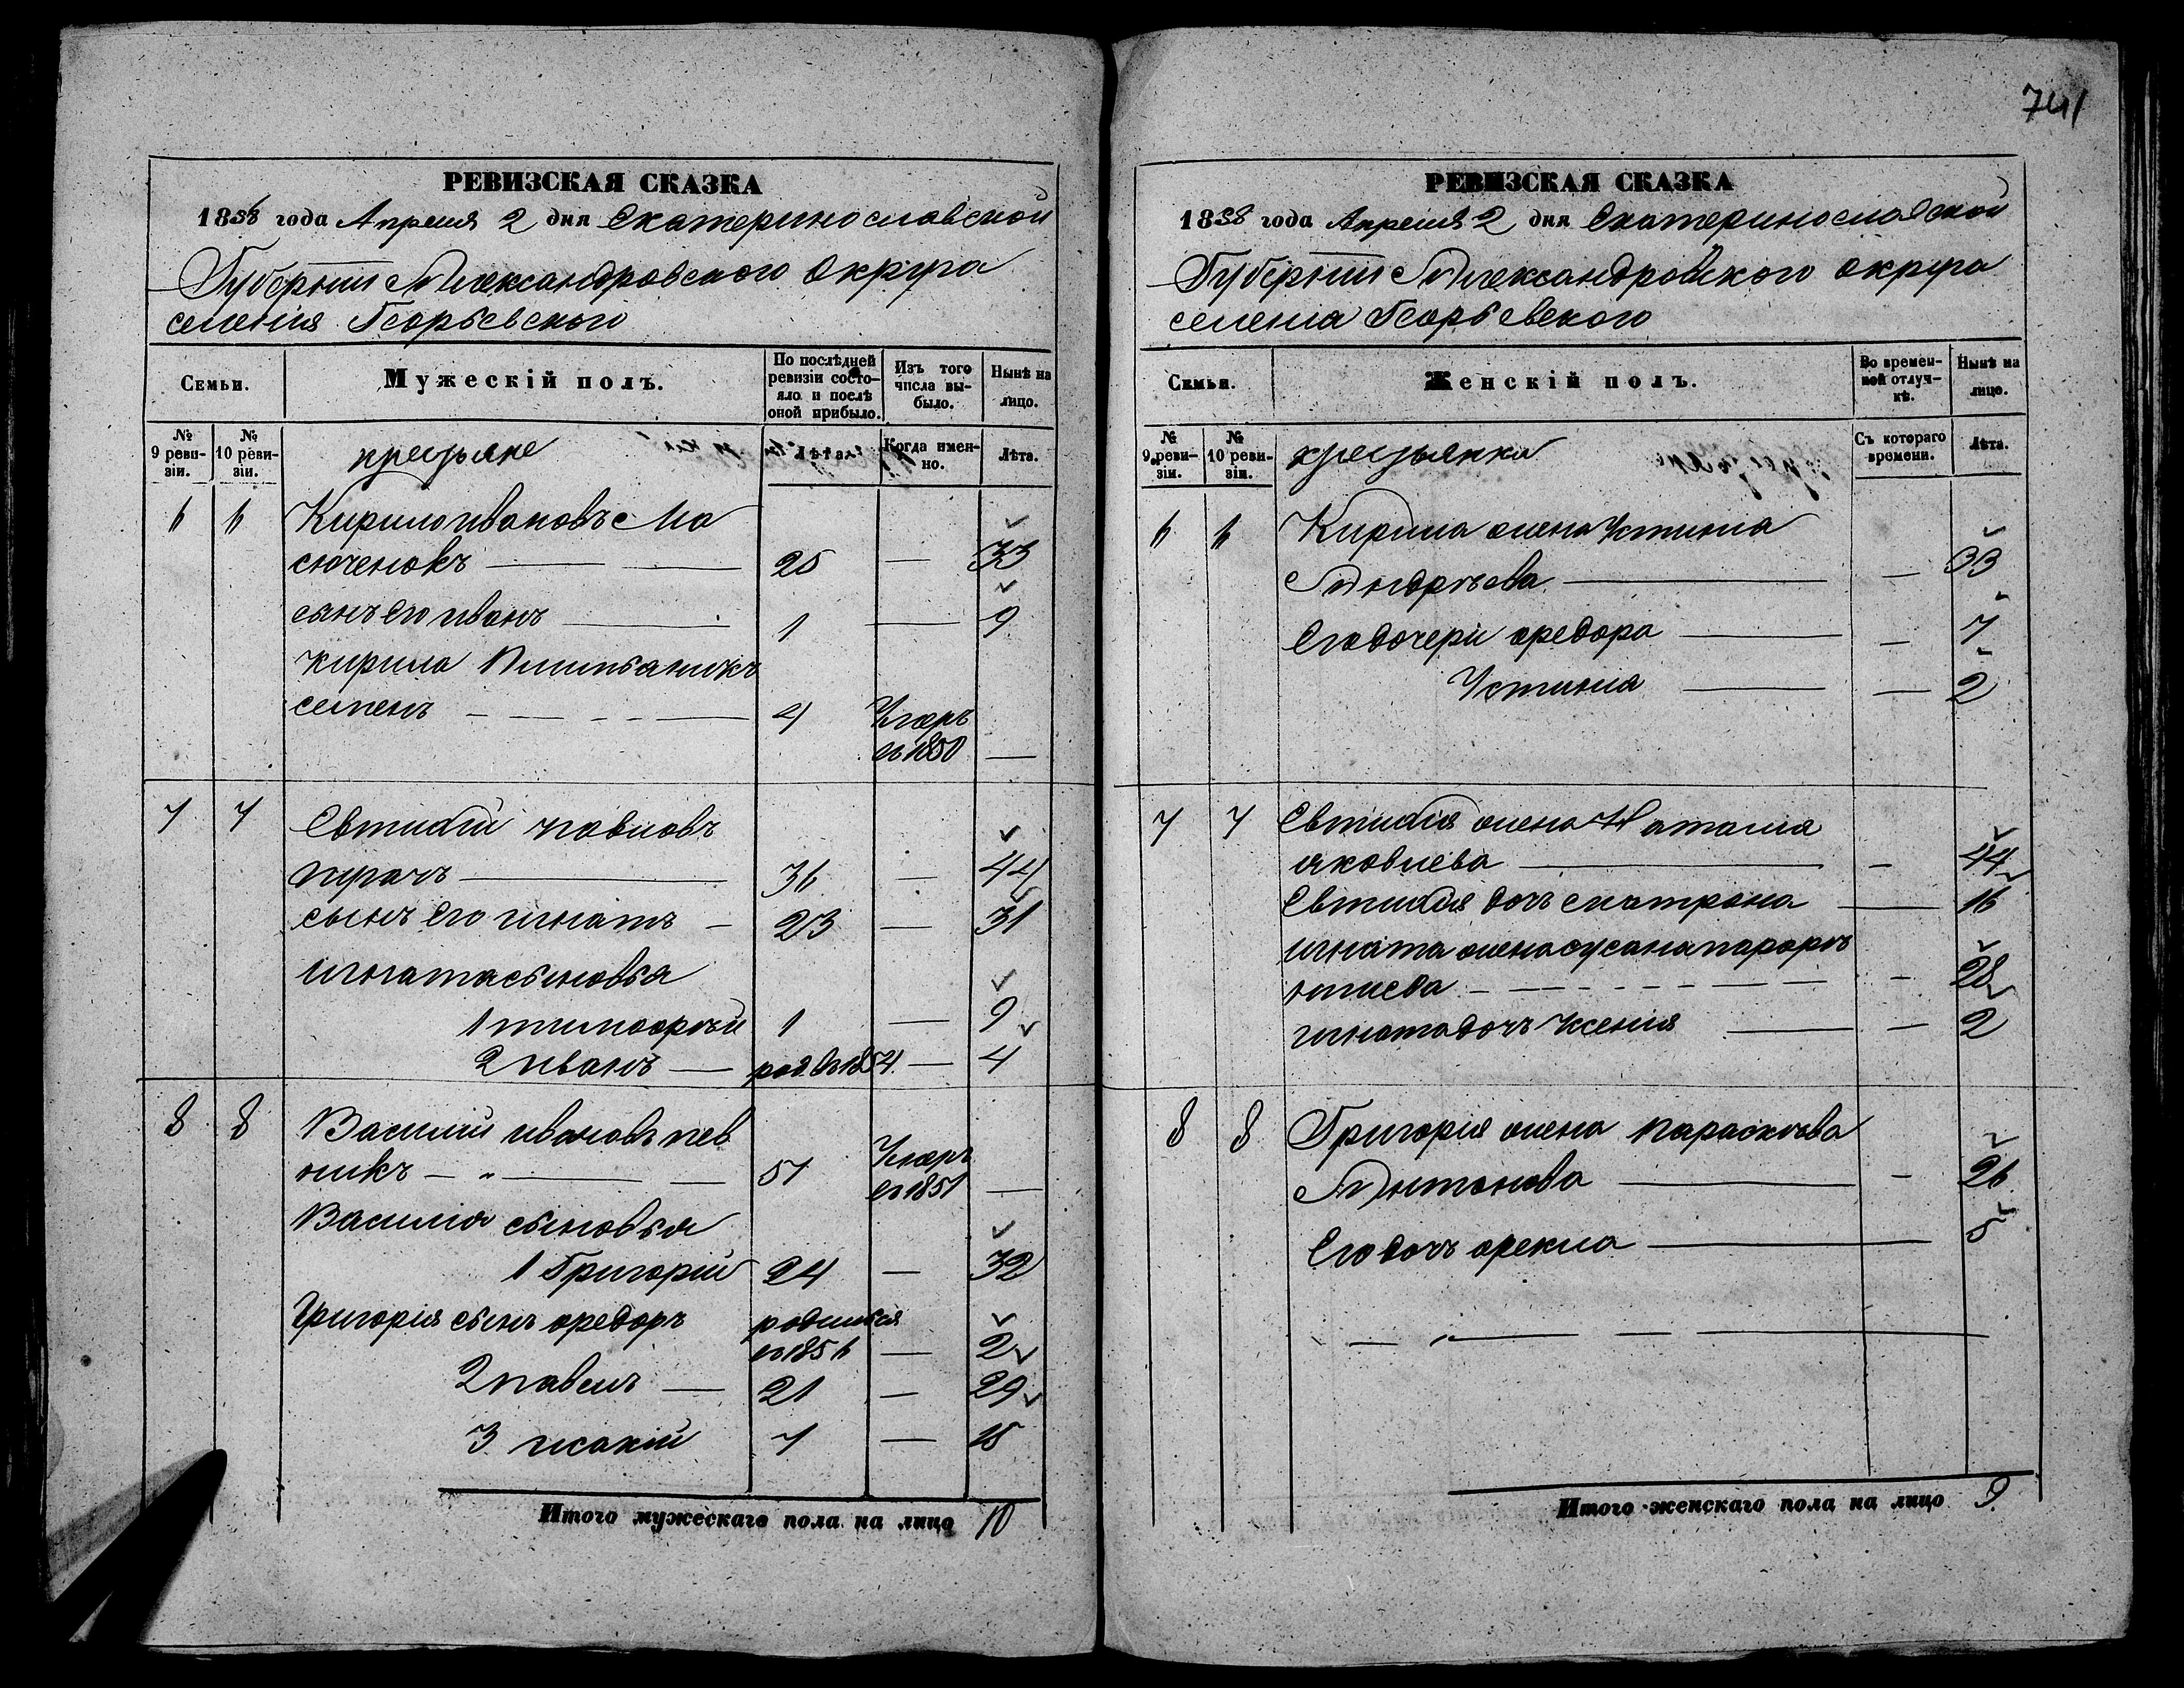 741
РЕВИЗСКАЯ СКАЗКА
1858 года Апреля 2 дня Екатеринославской
Губернии Александровского округа
селения Георьевского
Семьи.
Мужескій полъ.
По послѣдней ревизіи состояло и послѣ оной прибыло.
Изъ того числа выбыло.
Нынѣ на лицо.
№ 9 ревизіи.
№ 10 ревизіи.
Лѣта.
Когда именно.
Лѣта.
6 6 Кирило ивановъ Ма
сюченокъ 25 — 33
сынъ его иванъ 1 — 9
кирила
семенъ 4 Умеръ
въ 1850 —
7 7 Евтихій павловъ
36 — 44
сынъ его игнатъ 23 — 31
игната сыновья
1 тимофѣй 1 — 9
2 иванъ — род. въ 1854 — 4
8 8 Василій ивановъ пев
никъ 51 Умеръ
въ 1851 —
Василія сыновья
1 Григорій 24 — 32
Григорія сынъ федоръ родился
въ 1856 — 2
2 павелъ — 21 — 29
3 исакій 7 — 15
Итого мужескаго пола на лицо 10
РЕВИЗСКАЯ СКАЗКА
1858 года Апреля 2 дня Екатеринославской
Губернии Александровского округа
селения Георьевского
Семьи.
Женскій полъ.
Во временной отлучкѣ.
Нынѣ на лицо.
№ 9 ревизіи.
№ 10 ревизіи.
Съ котораго времени.
Лѣта.
6 6 Кирила жена Устинia
Андрѣева — 33
Его дочери федора — 7
Устиния — 2
7 7 Евтихія жена Наталия
яковлева — 44
Евтихія дочь матрона — 16
игната жена сусана
— 28
игната дочь ксения — 2
8 8 Григорія жена параскѣва
Антонова — 26
Его дочь фекла — 5
Итого женскаго пола на лицо 9